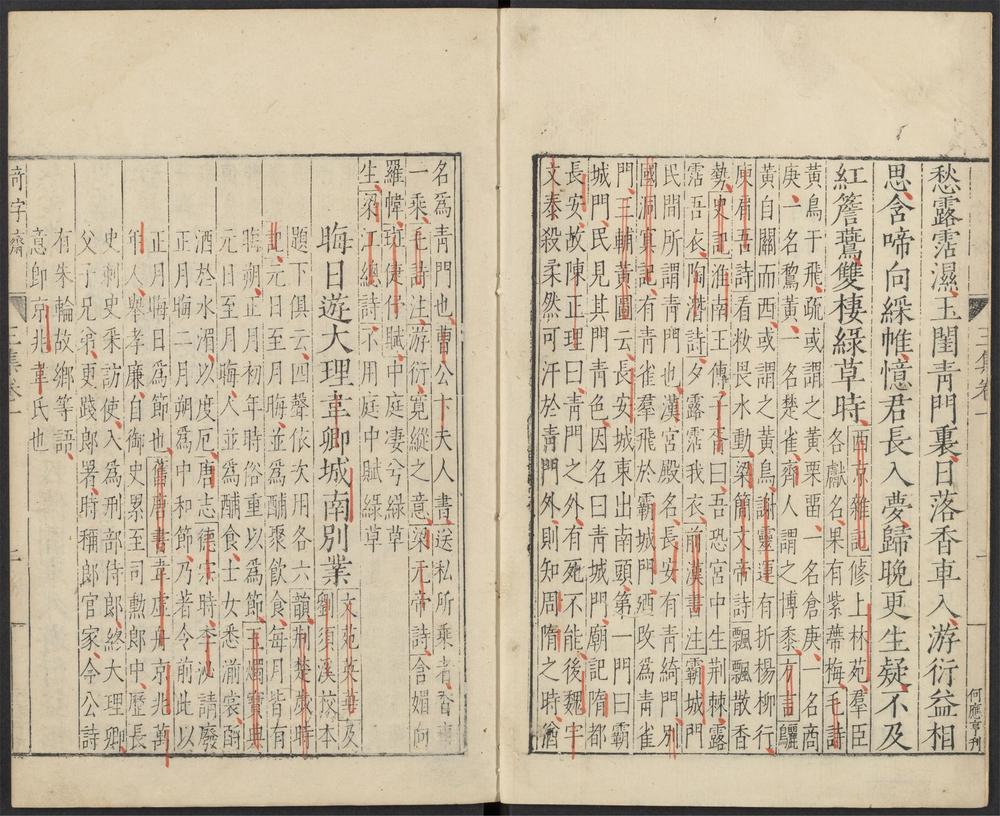 愁露霑濕玉閨青門裏日落香車入游衍益相
思含啼向綵帷憶君長入夢歸晚更生疑不及
紅簷鷰雙棲綠草時西京雜記修上林苑羣臣
各獻名果有紫蔕梅毛詩
黃鳥于飛疏或謂之黃栗畱一名倉庚一名商
庚一名鵹黃一名楚雀齊人謂之博黍方言鸝
黃自關而西或謂之黃鳥謝靈運有折楊柳行
庾肩吾詩看妝畏水動梁簡文帝詩飄飄散香
勢史記淮南王傳子胥曰吾恐宮中生荆棘露
霑吾衣陶潛詩夕露霑我衣前漢書注霸城門
民間所謂青門也漢宮殿名長安有青綺門別
國洞㝠記有青雀羣飛於霸城門廼改爲青雀
門三輔黃圖云長安城東出南頭第一門曰霸
城門民見其門青色因名曰青城門廟記隋都
長安故陳正理曰青門之外有死不能後魏宇
文泰殺柔然可汗於青門外則知周隋之時猶
何應亨刊
三集卷一
名爲青門也曹公卞夫人書送私所乘香車
一乘毛詩注游衍寬縱之意梁元帝詩含媚向
羅幃班倢伃賦中庭凄兮綠草
生梁江總詩不用庭中賦綠草
晦日遊大理韋卿城南別業文苑英華及
劉須溪校本
題下俱云四聲依次用各六韻荆楚歲時
記元日至月晦並爲酺聚飲食每月皆有
晦朔正月初年時俗重以爲節玉燭寶典
元日至月晦人並爲酺食士女悉湔裳酹
酒於水湄以度厄唐志德宗時李泌請廢
正月晦以二月朔爲中和節乃著令前此以
正月晦日爲節也舊唐書韋虛舟京兆萬
年人舉孝廉自御史累至司勳郎中歷長
史刺史乘訪使入爲刑部侍郎終大理卿
父子兄弟更踐郎署時稱郎官家今公詩
有朱輪故鄉等語
意卽京兆韋氏也
三集卷一